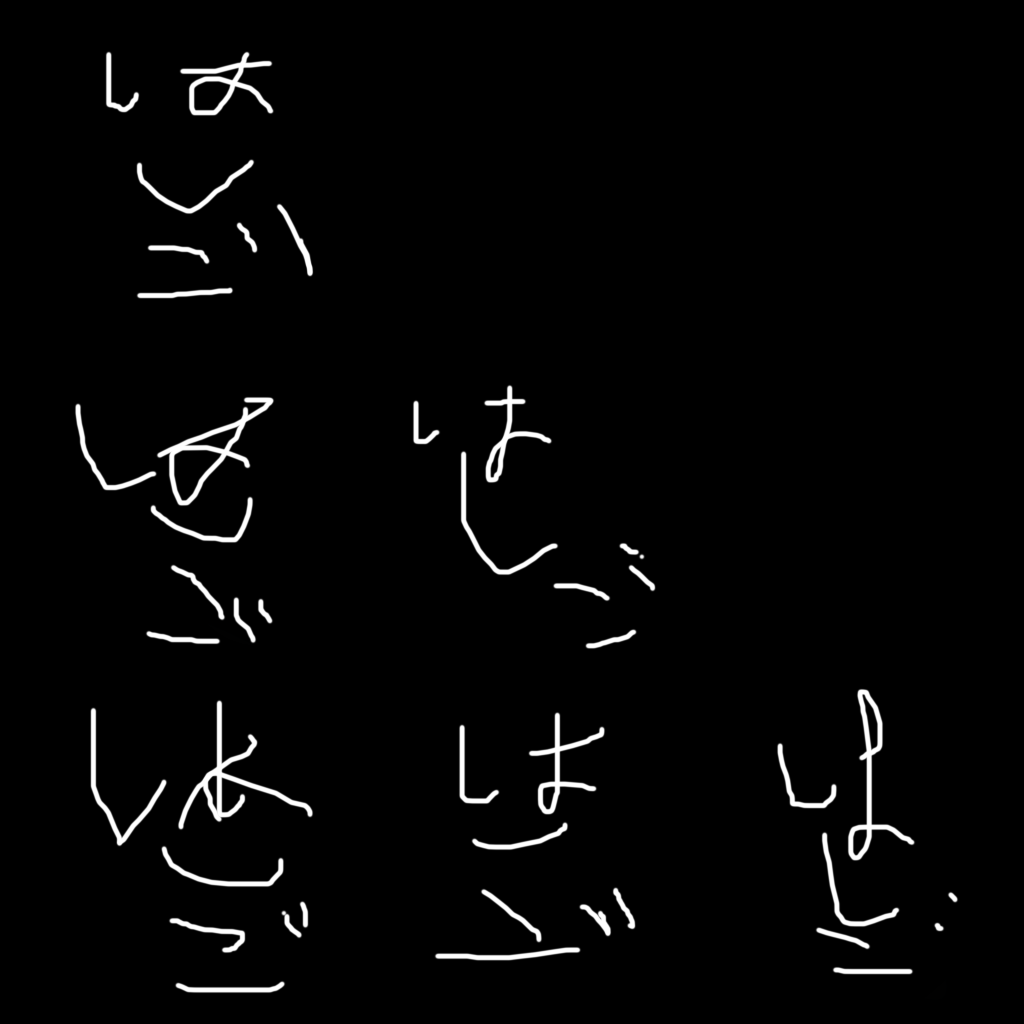 はしご
はしご
はしご
はしご
はしご
はしご